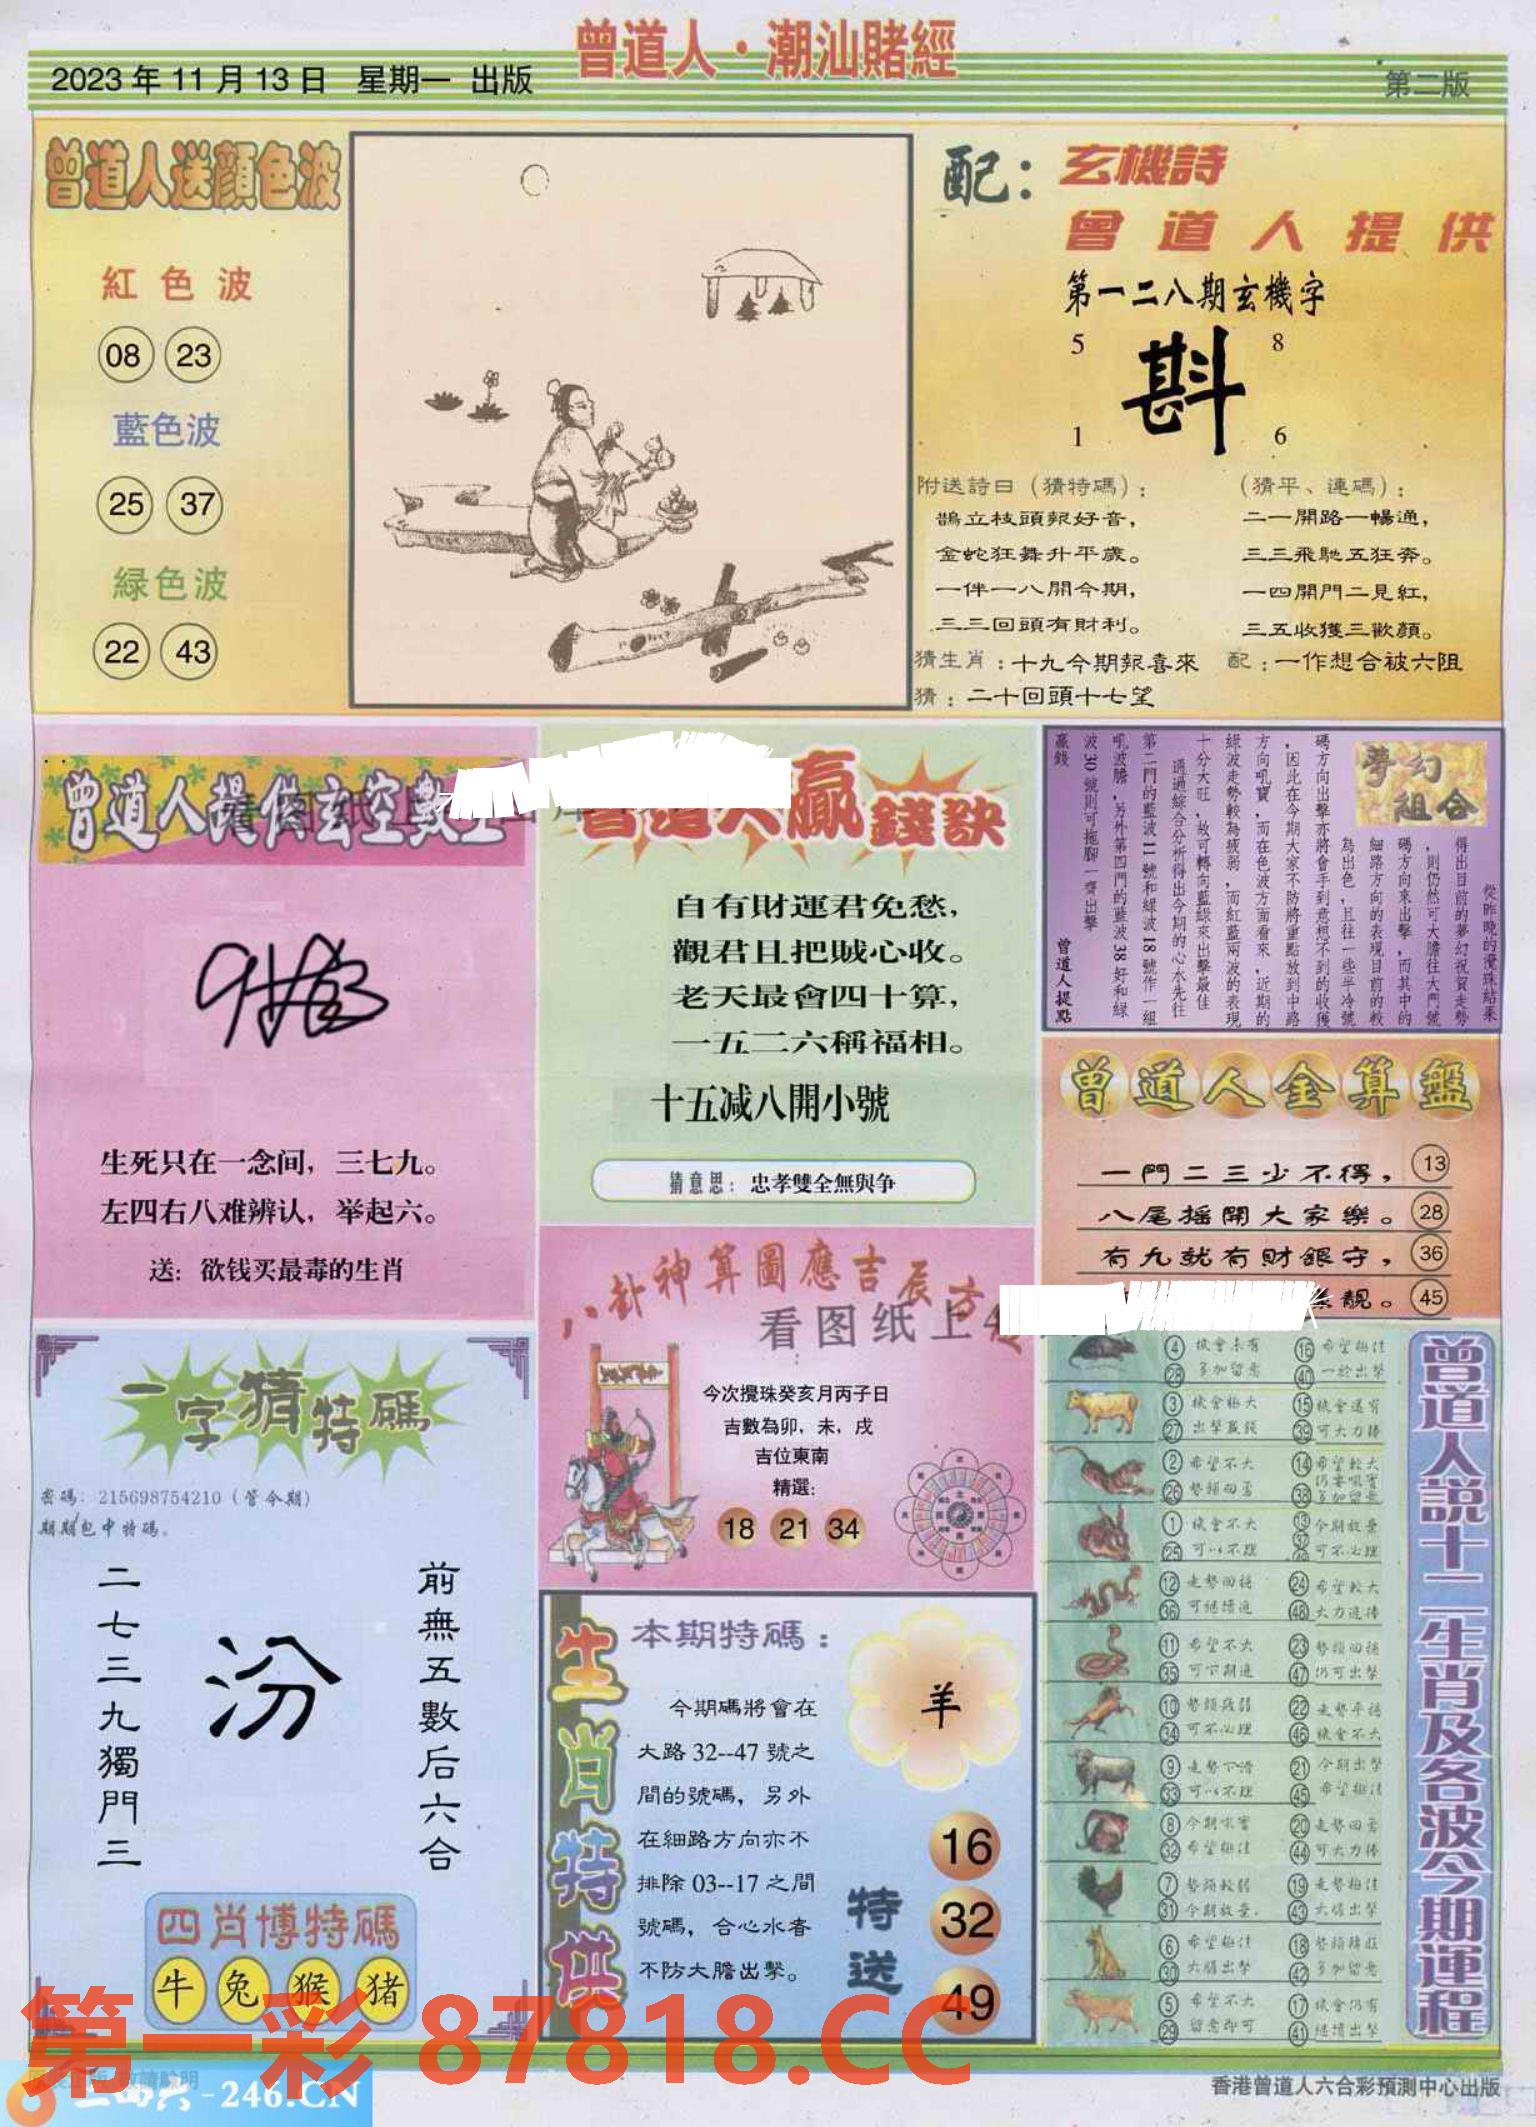 曾道人·潮汕賭經
2023年11月13日 星期一 出版
第二版
曾道人送顔色波
紅色波
08 23
藍色波
25 37
緑色波
22 43
配：玄機詩
曾道人提供
第一二八期玄機字
5 8
斟
1 6
附送詩曰（猜特碼）：
鵲立枝頭報好音，
金蛇狂舞升平歲。
一伴一八開今期，
三三回頭有財利。
（猜平、連碼）：
二一開路一暢通，
三三飛馳五狂奔。
一四開門二見紅，
三五收獲三歡顔。
猜生肖：十九今期報喜來
配：一作想合被六阻
猜：二十回頭十七望
曾道人提供玄空數
生死只在一念间，三七九。
左四右八难辨认，举起六。
送：欲钱买最毒的生肖
曾道人贏錢訣
自有財運君免愁，
觀君且把賊心收。
老天最會四十算，
一五二六稱福相。
十五减八開小號
猜意思：忠孝雙全無與争
夢幻組合
從昨晚的攪珠結果
得出目前的夢幻祝賀走勢
，則仍然可大膽往大門號
碼方向來出擊，而其中的
細路方向的表現目前的較
為出色，且往一些半冷號
碼方向出擊亦將會手到意想不到的收獲
，因此在今期大家不防將重點放到中路
方向吼寶，而在色波方面看來，近期的
緑波走勢較為疲弱，而紅藍兩波的表現
十分大旺，故可轉向藍緑來出擊最佳
通過綜合分析得出今期的心水先往
第二門的藍波11號和緑波18號作一組
吼波膽，另外第四門的藍波38好和緑
波30號則可拖腳一齊出擊
贏錢
曾道人提點
曾道人金算盤
一門二三少不得，13
八尾摇開大家樂。28
有九就有財銀守，36
靚。45
八卦神算圖應吉辰方
看图纸上
今次攪珠癸亥月丙子日
吉數為卯、未、戌
吉位東南
精選：
18 21 34
一字猜特碼
密碼：215698754210（管今期）
期期包中特碼。
前無五數后六合
汾
二七三九獨門三
四肖博特碼
牛 兔 猴 猪
生肖特供
本期特碼：
今期碼將會在
大路32--47號之
間的號碼，另外
在細路方向亦不
排除03--17之間
號碼，合心水者
不防大膽出擊。
羊
特送
16
32
49
曾道人説十二生肖及各波今期運程
④ 機會未有 ⑯ 希望極佳
㉘ 多加留意 ㊵ 一於出擊
③ 機會極大 ⑮ 機會還有
㉗ 出擊贏錢 ㊴ 可大力捧
② 希望不大 ⑭ 希望較大
㉖ 勢頭回勇 ㊳ 多加留意
① 機會不大 ⑬ 今期放量
㉕ 可以不理 ㊲ 可不必理
⑫ 走勢回穩 ㉔ 希望較大
㊱ 可繼續進 ㊽ 大力追捧
⑪ 希望不大 ㉓ 勢頭回穩
㉟ 可下期進 ㊼ 仍可出擊
⑩ 勢頭疲弱 ㉒ 走勢平穩
㉞ 可不必理 ㊻ 機會不大
⑨ 走勢下滑 ㉑ 今期出擊
㉝ 可以不理 ㊺ 希望極佳
⑧ 今期吼寶 ⑳ 走勢回勇
㉜ 希望極佳 ㊹ 可大力捧
⑦ 勢頭較弱 ⑲ 走勢極佳
㉛ 今期放量. ㊸ 大膽出擊
⑥ 希望極佳 ⑱ 勢頭轉旺
㉚ 大膽出擊 ㊷ 多加留意
⑤ 希望不大 ⑰ 機會仍有
㉙ 留意即可 ㊶ 繼續出擊
第一彩 87818.CC
二四六-246.CN
香港曾道人六合彩預測中心出版